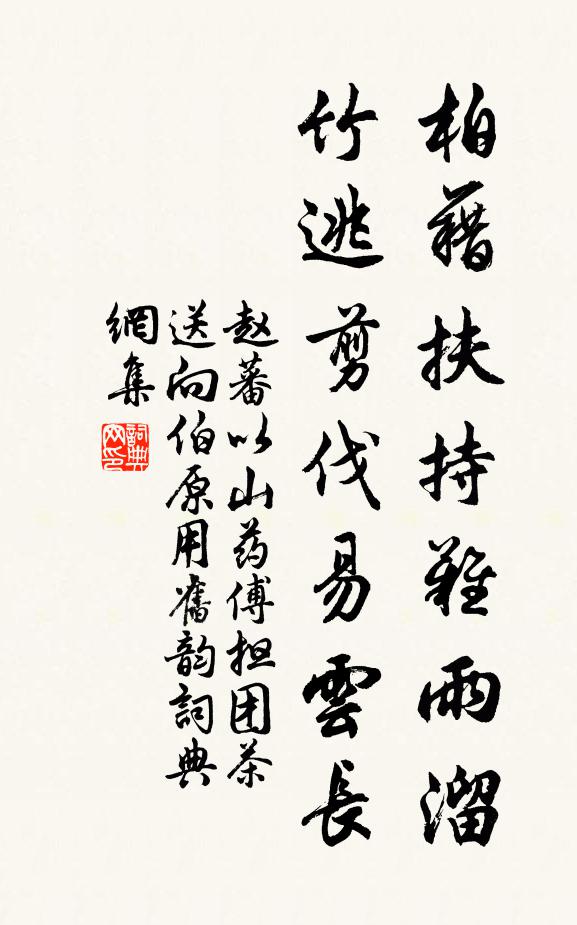 柏藉扶持難雨溜
竹逃剪伐易雲長
赵蕃以山药傅担团茶
送向伯原用舊韵詞典
網集
詞典
网印